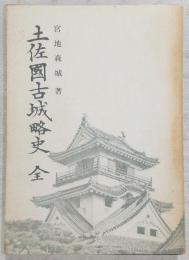 宮地森城著
土佐國古城略史 全